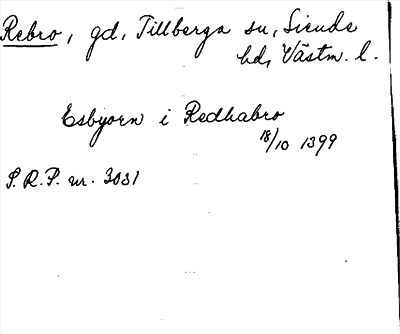 Rebro, gd, Tillberga sn, Siende
hd, Västm. l.
Esbjorn i Redhabro
18/10 1399
S.R.P. nr. 3031